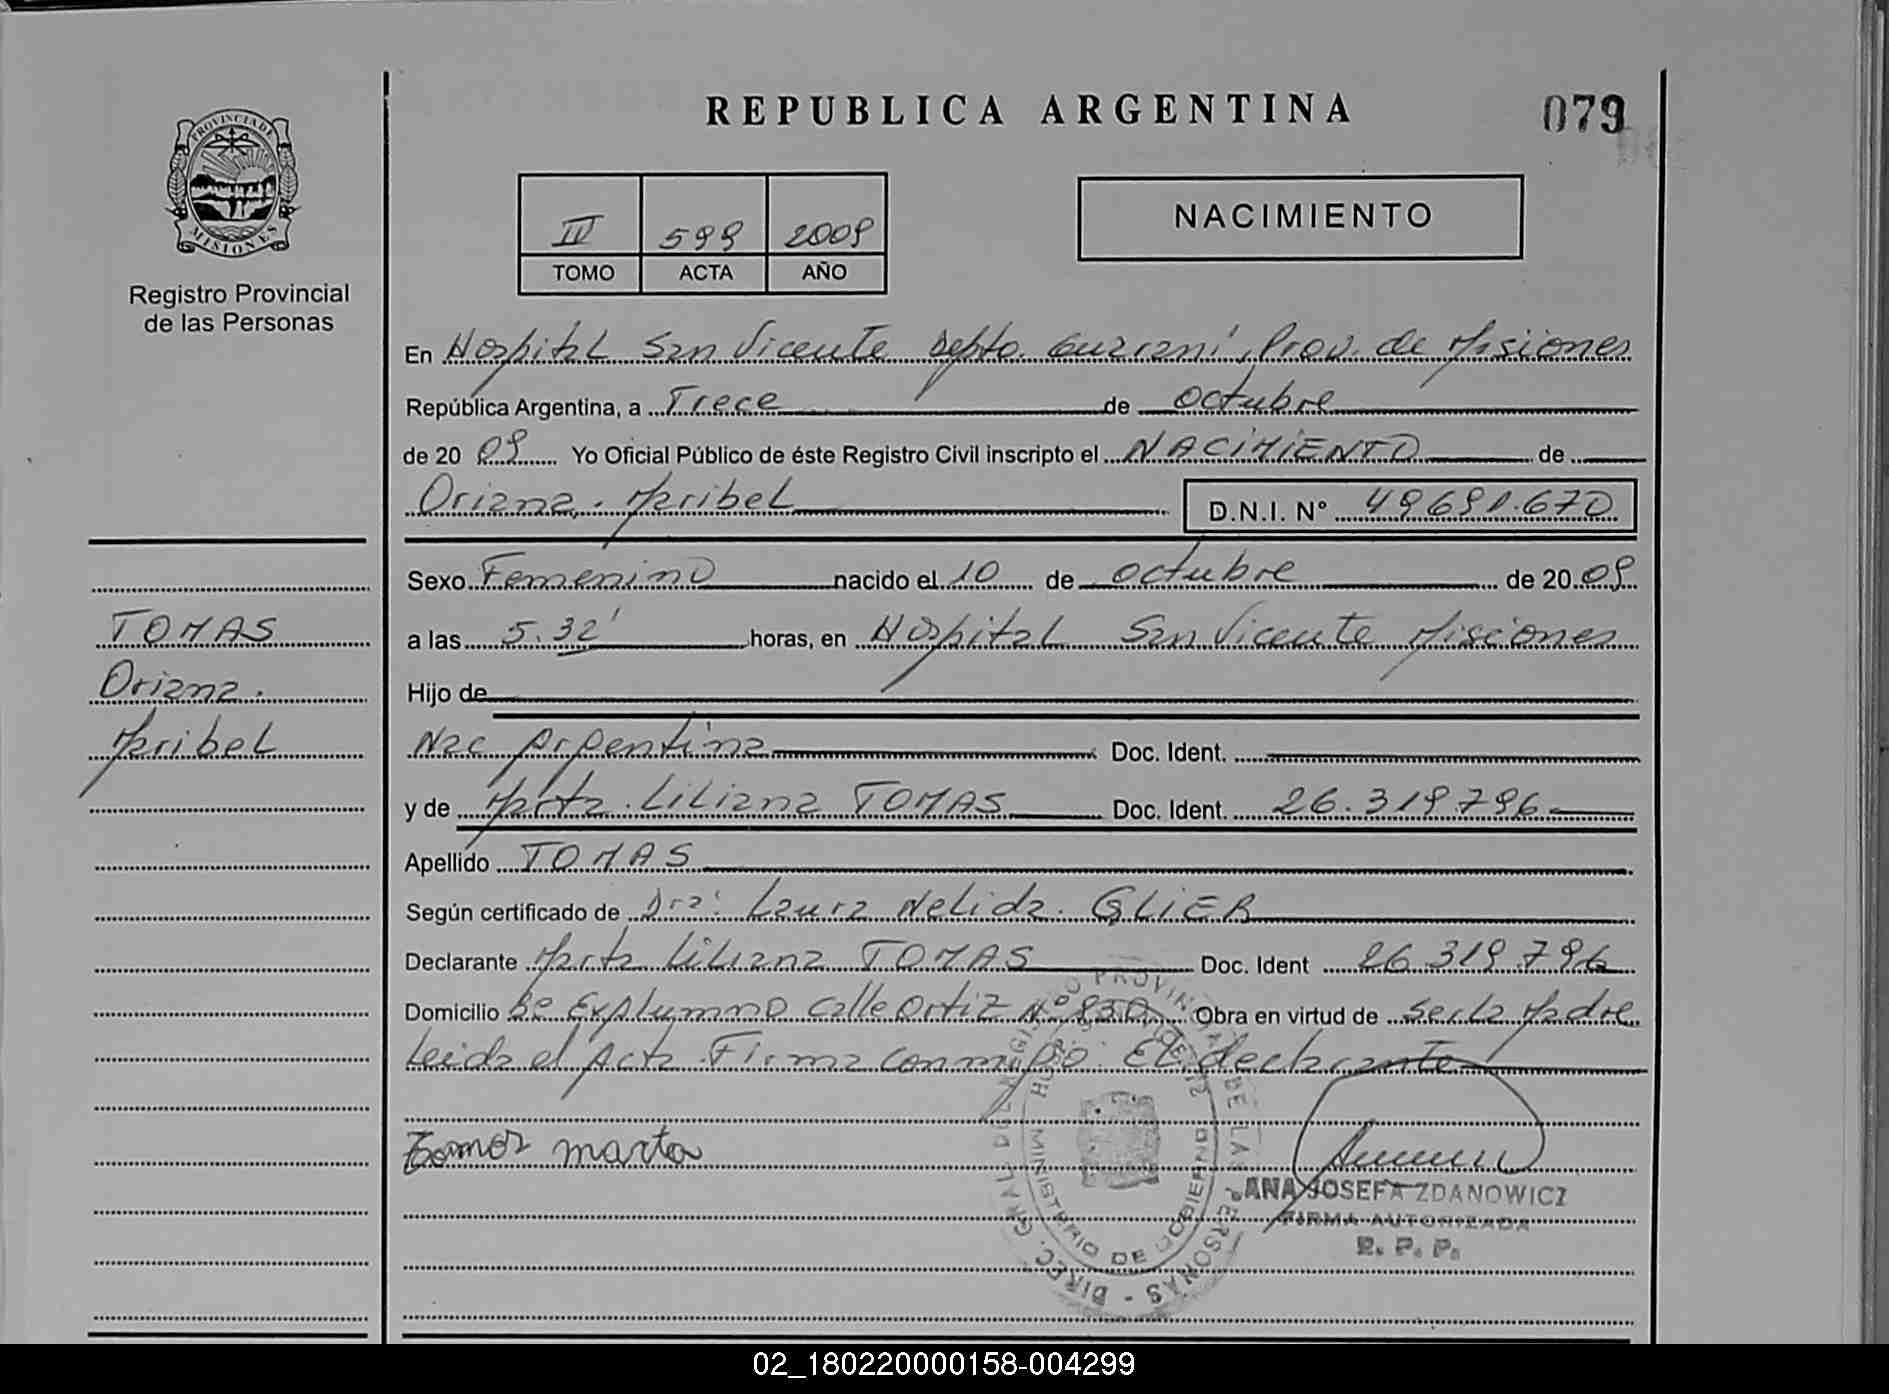 REPUBLICA ARGENTINA
079
PROVINCIA DE
MISIONES
Registro Provincial
de las Personas
599 2009
TOMO ACTA AÑO
NACIMIENTO
En Hospital San Vicente Depto. Guaraní, Prov. de Misiones
República Argentina, a Trece de octubre
de 20 09 Yo Oficial Público de éste Registro Civil inscripto el NACIMIENTO de
Oriana. Maribel D.N.I. Nº
Sexo Femenino nacido el 10 de octubre de 20 09
a las 5.32' horas, en Hospital San Vicente Misiones
Hijo de
Nac Argentina Doc. Ident.
y de Marta. Liliana TOMAS Doc. Ident. 26.319.796
Apellido TOMAS
Según certificado de Dra: Laura Nelida. GLIER
Declarante Marta Liliana TOMAS Doc. Ident 26 319.796
Domicilio calle Ortiz Nº Obra en virtud de ser la Madre
Leida el Acta Firma conmigo. El declarante
TOMAS
Oriana.
Maribel
marta
ANA JOSEFA ZDANOWICZ
FIRMA AUTORIZADA
R. P. P.
MINISTERIO DE GOBIERNO
02_180220000158-004299